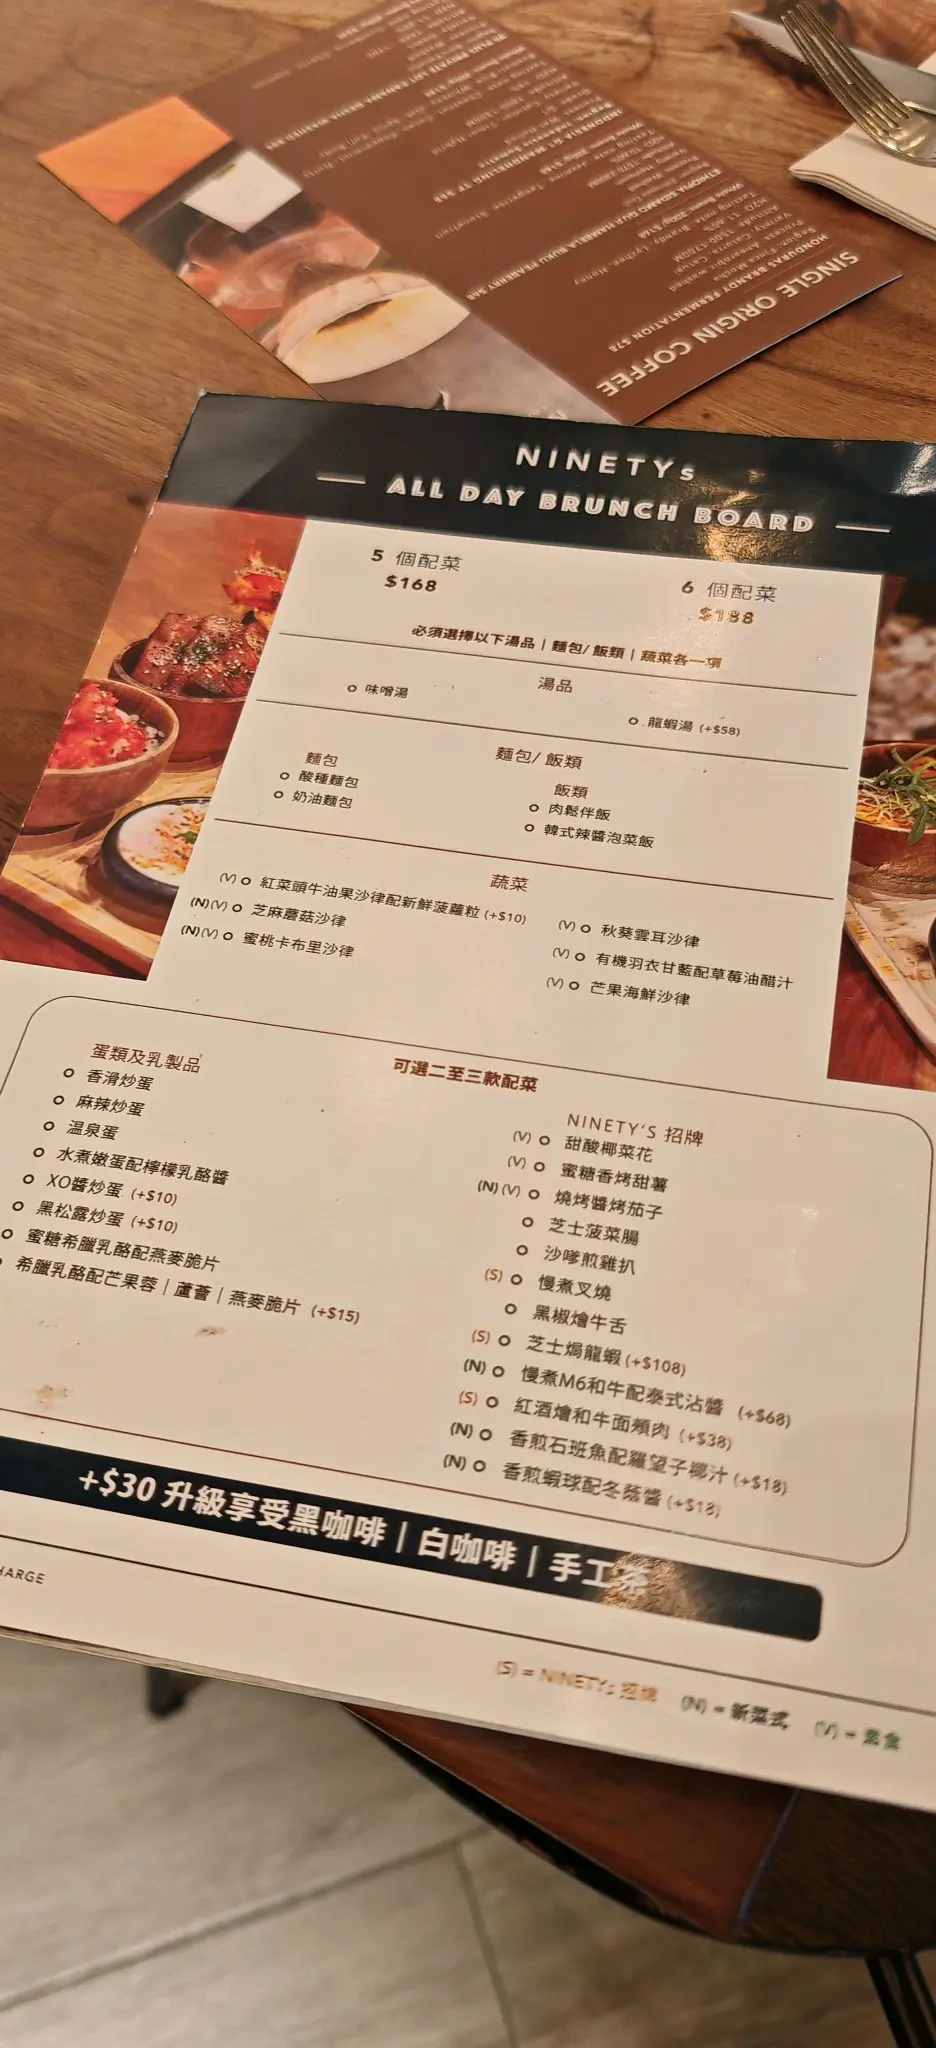 SINGLE ORIGIN COFFEE
HONDURAS BRANDY FERMENTATION $78
NINETYs
ALL DAY BRUNCH BOARD
5 個配菜
$168
6 個配菜
$188
必須選擇以下湯品 | 麵包/ 飯類 | 蔬菜各一項
湯品
味噌湯
龍蝦湯 (+$58)
麵包/ 飯類
麵包
酸種麵包
奶油麵包
飯類
肉鬆伴飯
韓式辣醬泡菜飯
蔬菜
(V) 紅菜頭牛油果沙律配新鮮菠蘿粒 (+$10)
(N)(V) 芝麻蘑菇沙律
(N)(V) 蜜桃卡布里沙律
(V) 秋葵雲耳沙律
(V) 有機羽衣甘藍配草莓油醋汁
(V) 芒果海鮮沙律
可選二至三款配菜
蛋類及乳製品
香滑炒蛋
麻辣炒蛋
溫泉蛋
水煮嫩蛋配檸檬乳酪醬
XO醬炒蛋 (+$10)
黑松露炒蛋 (+$10)
蜜糖希臘乳酪配燕麥脆片
希臘乳酪配芒果蓉 | 蘆薈 | 燕麥脆片 (+$15)
NINETY'S 招牌
(V) 甜酸椰菜花
(V) 蜜糖香烤甜薯
(N)(V) 燒烤醬烤茄子
芝士菠菜腸
沙嗲煎雞扒
(S) 慢煮叉燒
黑椒燴牛舌
(S) 芝士焗龍蝦 (+$108)
(N) 慢煮M6和牛配泰式沾醬 (+$68)
(S) 紅酒燴和牛面頰肉 (+$38)
(N) 香煎石班魚配羅望子椰汁 (+$18)
(N) 香煎蝦球配冬蔭醬 (+$18)
+$30 升級享受黑咖啡 | 白咖啡 | 手工茶
HARGE
(S) = NINETYs 招牌 (N) = 新菜式 (V) = 素食